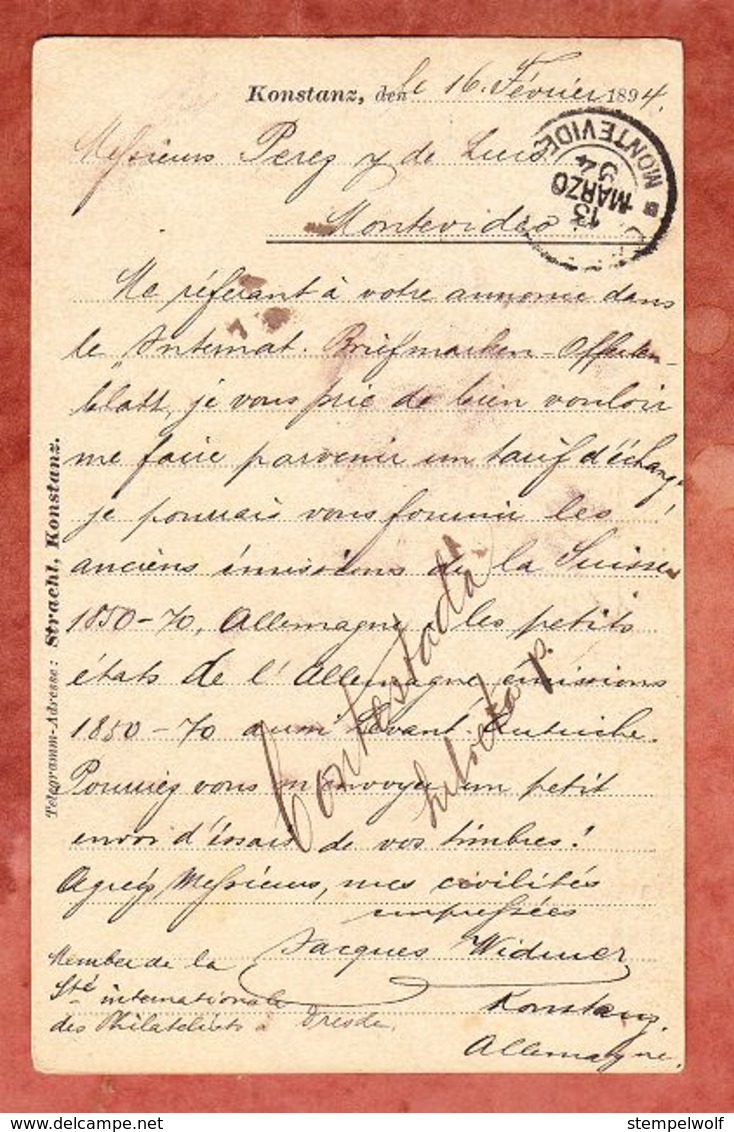 Konstanz, den le 16. Février 1894.
Messieurs Perez y de Luis.
Montevideo
MONTEVIDEO
13
MARZO
94
Me réferant à votre annonce dans
le „Internat. Briefmarken-Offerten-
blatt, je vous prie de bien vouloir
me faire parvenir un tarif d'échange
je pourrais vous fournir les
anciens émissions de la Suisse
1850-70, Allemagne, les petits
états de l'Allemagne émissions
1850-70 Levant. Autriche.
Pourriez vous m'envoyer un petit
envoi d'éssais de vos timbres!
Agreéz Messieurs, mes civilités
empressées
Jacques Widmer
Konstanz
Allemagne.
Member de la
Sté internationale
des Philatelists à Dresde.
Contestada
Telegramm-Adresse: Strachl, Konstanz.
stempelwolf